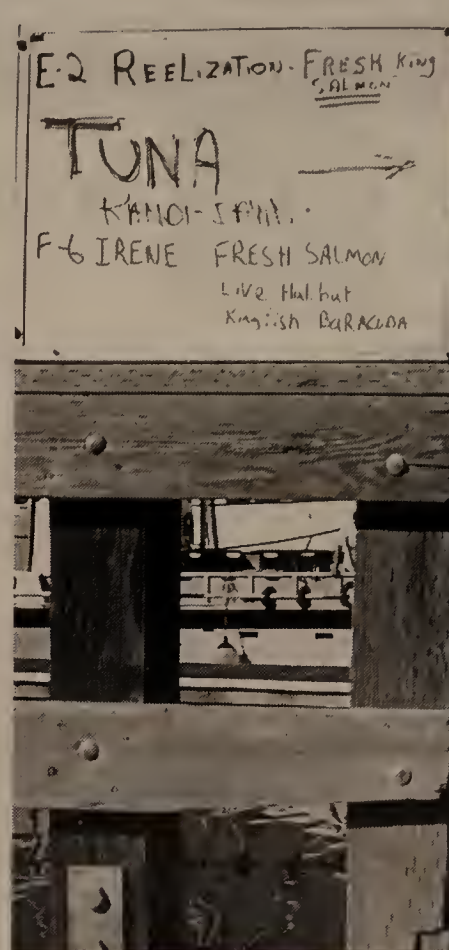 E-2 REELIZATION. FRESH King
SALMON
TUNA
F-6 IRENE FRESH SALMON
Live Halibut
Kingfish BARACUDA